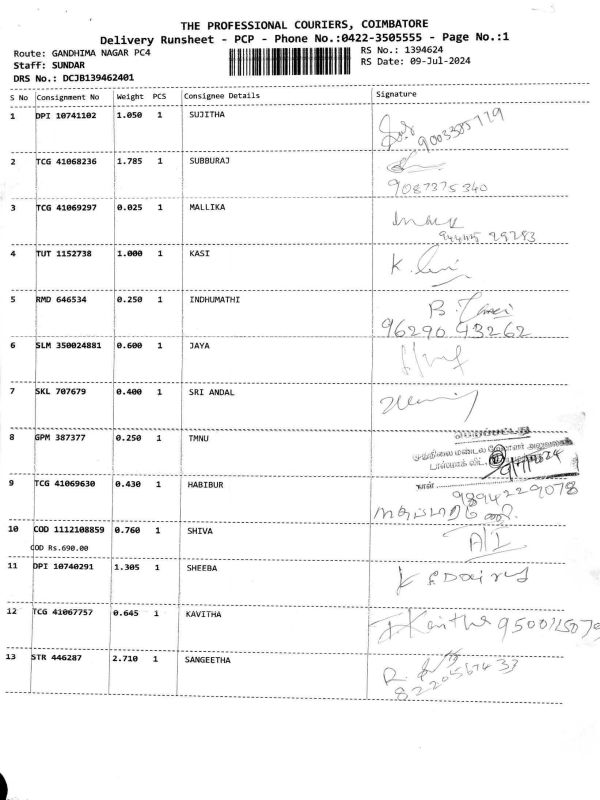 THE PROFESSIONAL COURIERS, COIMBATORE
Delivery Runsheet - PCP - Phone No.:0422-3505555 - Page No.:1
Route: GANDHIMA NAGAR PC4
RS No.: 1394624
Staff: SUNDAR
RS Date: 09-Jul-2024
DRS No.: DCJB139462401
S No Consignment No Weight PCS Consignee Details Signature
1 DPI 10741102 1.050 1 SUJITHA
9003385779
2 TCG 41068236 1.785 1 SUBBURAJ
9087375340
3 TCG 41069297 0.025 1 MALLIKA
4 TUT 1152738 1.000 1 KASI
K.
5 RMD 646534 0.250 1 INDHUMATHI
B.
96290 43262
6 SLM 350024881 0.600 1 JAYA
7 SKL 707679 0.400 1 SRI ANDAL
8 GPM 387377 0.250 1 TMNU
9/7/2024
நாள்
9 TCG 41069630 0.430 1 HABIBUR
9894229078
10 COD 1112108859 0.760 1 SHIVA
COD Rs.690.00
11 DPI 10740291 1.305 1 SHEEBA
12 TCG 41067757 0.645 1 KAVITHA
Kavitha
13 STR 446287 2.710 1 SANGEETHA
R.